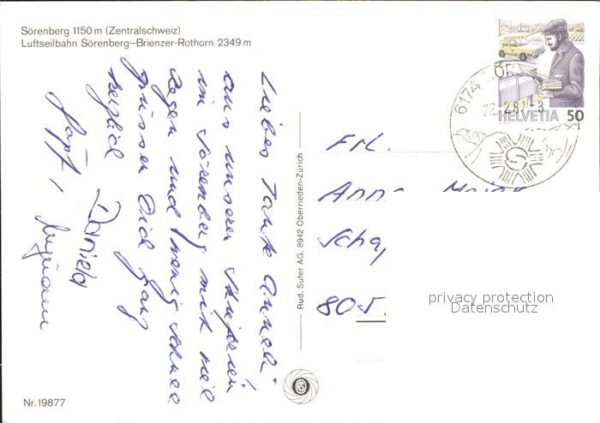 Sörenberg 1150 m (Zentralschweiz)
Luftseilbahn Sörenberg–Brienzer-Rothorn 2349 m
Liebes Tante Anneli.
aus unseren Skiferien
in Sörenberg mit viel
Regen und wenig Schnee
grüssen Dich ganz
herzlich
Daniela
Nr. 19877
Rud. Suter AG, 8942 Oberrieden-Zürich
6174 SÖR
HELVETIA 50
Frl.
Anna
Scha
805
privacy protection
Datenschutz